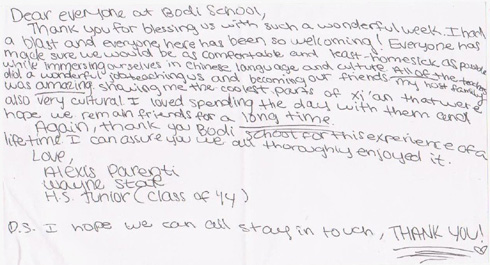 Dear everyone at Bodi School,
Thank you for blessing us with such a wonderful week. I had
a blast and everyone here has been so welcoming! Everyone has
made sure we would be as comfortable and least-homesick as possible
while immersing ourselves in Chinese language and culture. All of the teachers
did a wonderful job teaching us and becoming our friends. My host family
was amazing, showing me the coolest parts of Xi'an that were
also very cultural. I loved spending the day with them and
hope we remain friends for a long time.
Again, thank you Bodi School for this experience of a
lifetime. I can assure you we all thoroughly enjoyed it.
Love,
Alexis Parenti
Wayne
H.S. Junior (Class of '14)
P.S. I hope we can all stay in touch, THANK YOU!